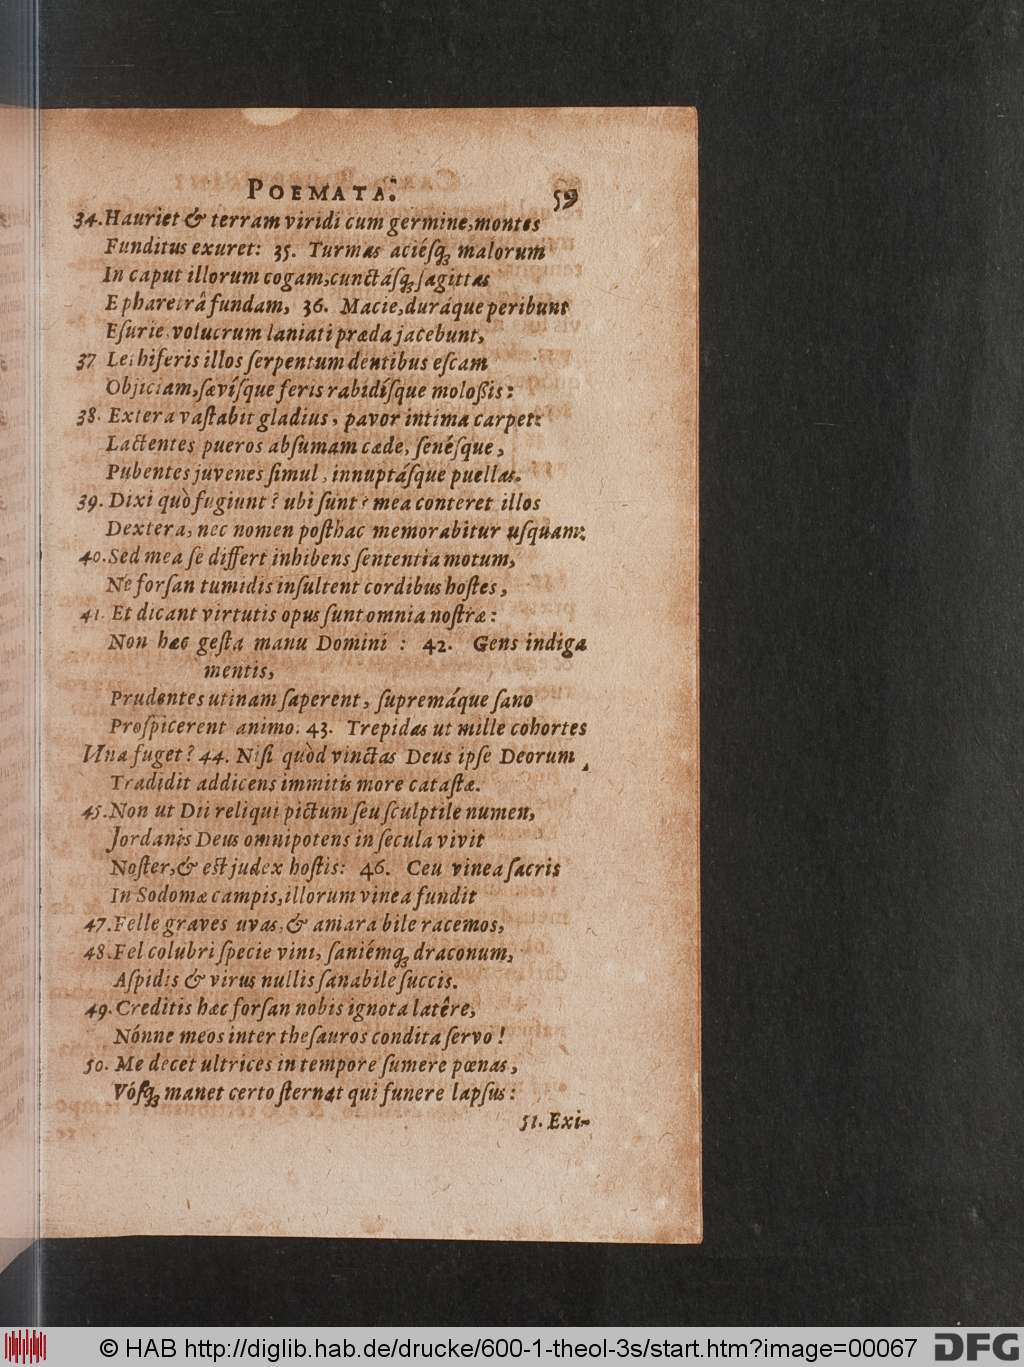 POEMATA. 59
34. Hauriet & terram viridi cum germine, montes
Funditus exuret: 35. Turmas aciésq; malorum
In caput illorum cogam, cunctásq; sagittas
E pharetrâ fundam, 36. Macie, duráque peribunt
Esurie, volucrum laniati præda jacebunt,
37 Lethiferis illos serpentum dentibus escam
Objiciam, sævísque feris rabidísque molossis:
38. Extera vastabit gladius, pavor intima carpet:
Lactentes pueros absumam cæde, senésque,
Pubentes juvenes simul, innuptásque puellas.
39. Dixi quò fugiunt? ubi sunt? mea conteret illos
Dextera, nec nomen posthac memorabitur usquam:
40. Sed mea se differt inhibens sententia motum,
Ne forsan tumidis insultent cordibus hostes,
41. Et dicant virtutis opus sunt omnia nostræ:
Non hæc gesta manu Domini : 42. Gens indiga
mentis,
Prudentes utinam saperent, supremáque sano
Prospicerent animo. 43. Trepidas ut mille cohortes
Una fuget? 44. Nisi quòd vinctas Deus ipse Deorum
Tradidit addicens immitis more catastæ.
45. Non ut Dii reliqui pictum seu sculptile numen,
Jordanis Deus omnipotens in secula vivit
Noster, & est judex hostis: 46. Ceu vinea sacris
In Sodomæ campis, illorum vinea fundit
47. Felle graves uvas, & amara bile racemos,
48. Fel colubri specie vini, saniémq; draconum,
Aspidis & virus nullis sanabile succis.
49. Creditis hæc forsan nobis ignota latêre,
Nónne meos inter thesauros condita servo!
50. Me decet ultrices in tempore sumere pœnas,
Vósq; manet certo sternat qui funere lapsus:
51. Exi-
© HAB http://diglib.hab.de/drucke/600-1-theol-3s/start.htm?image=00067
DFG